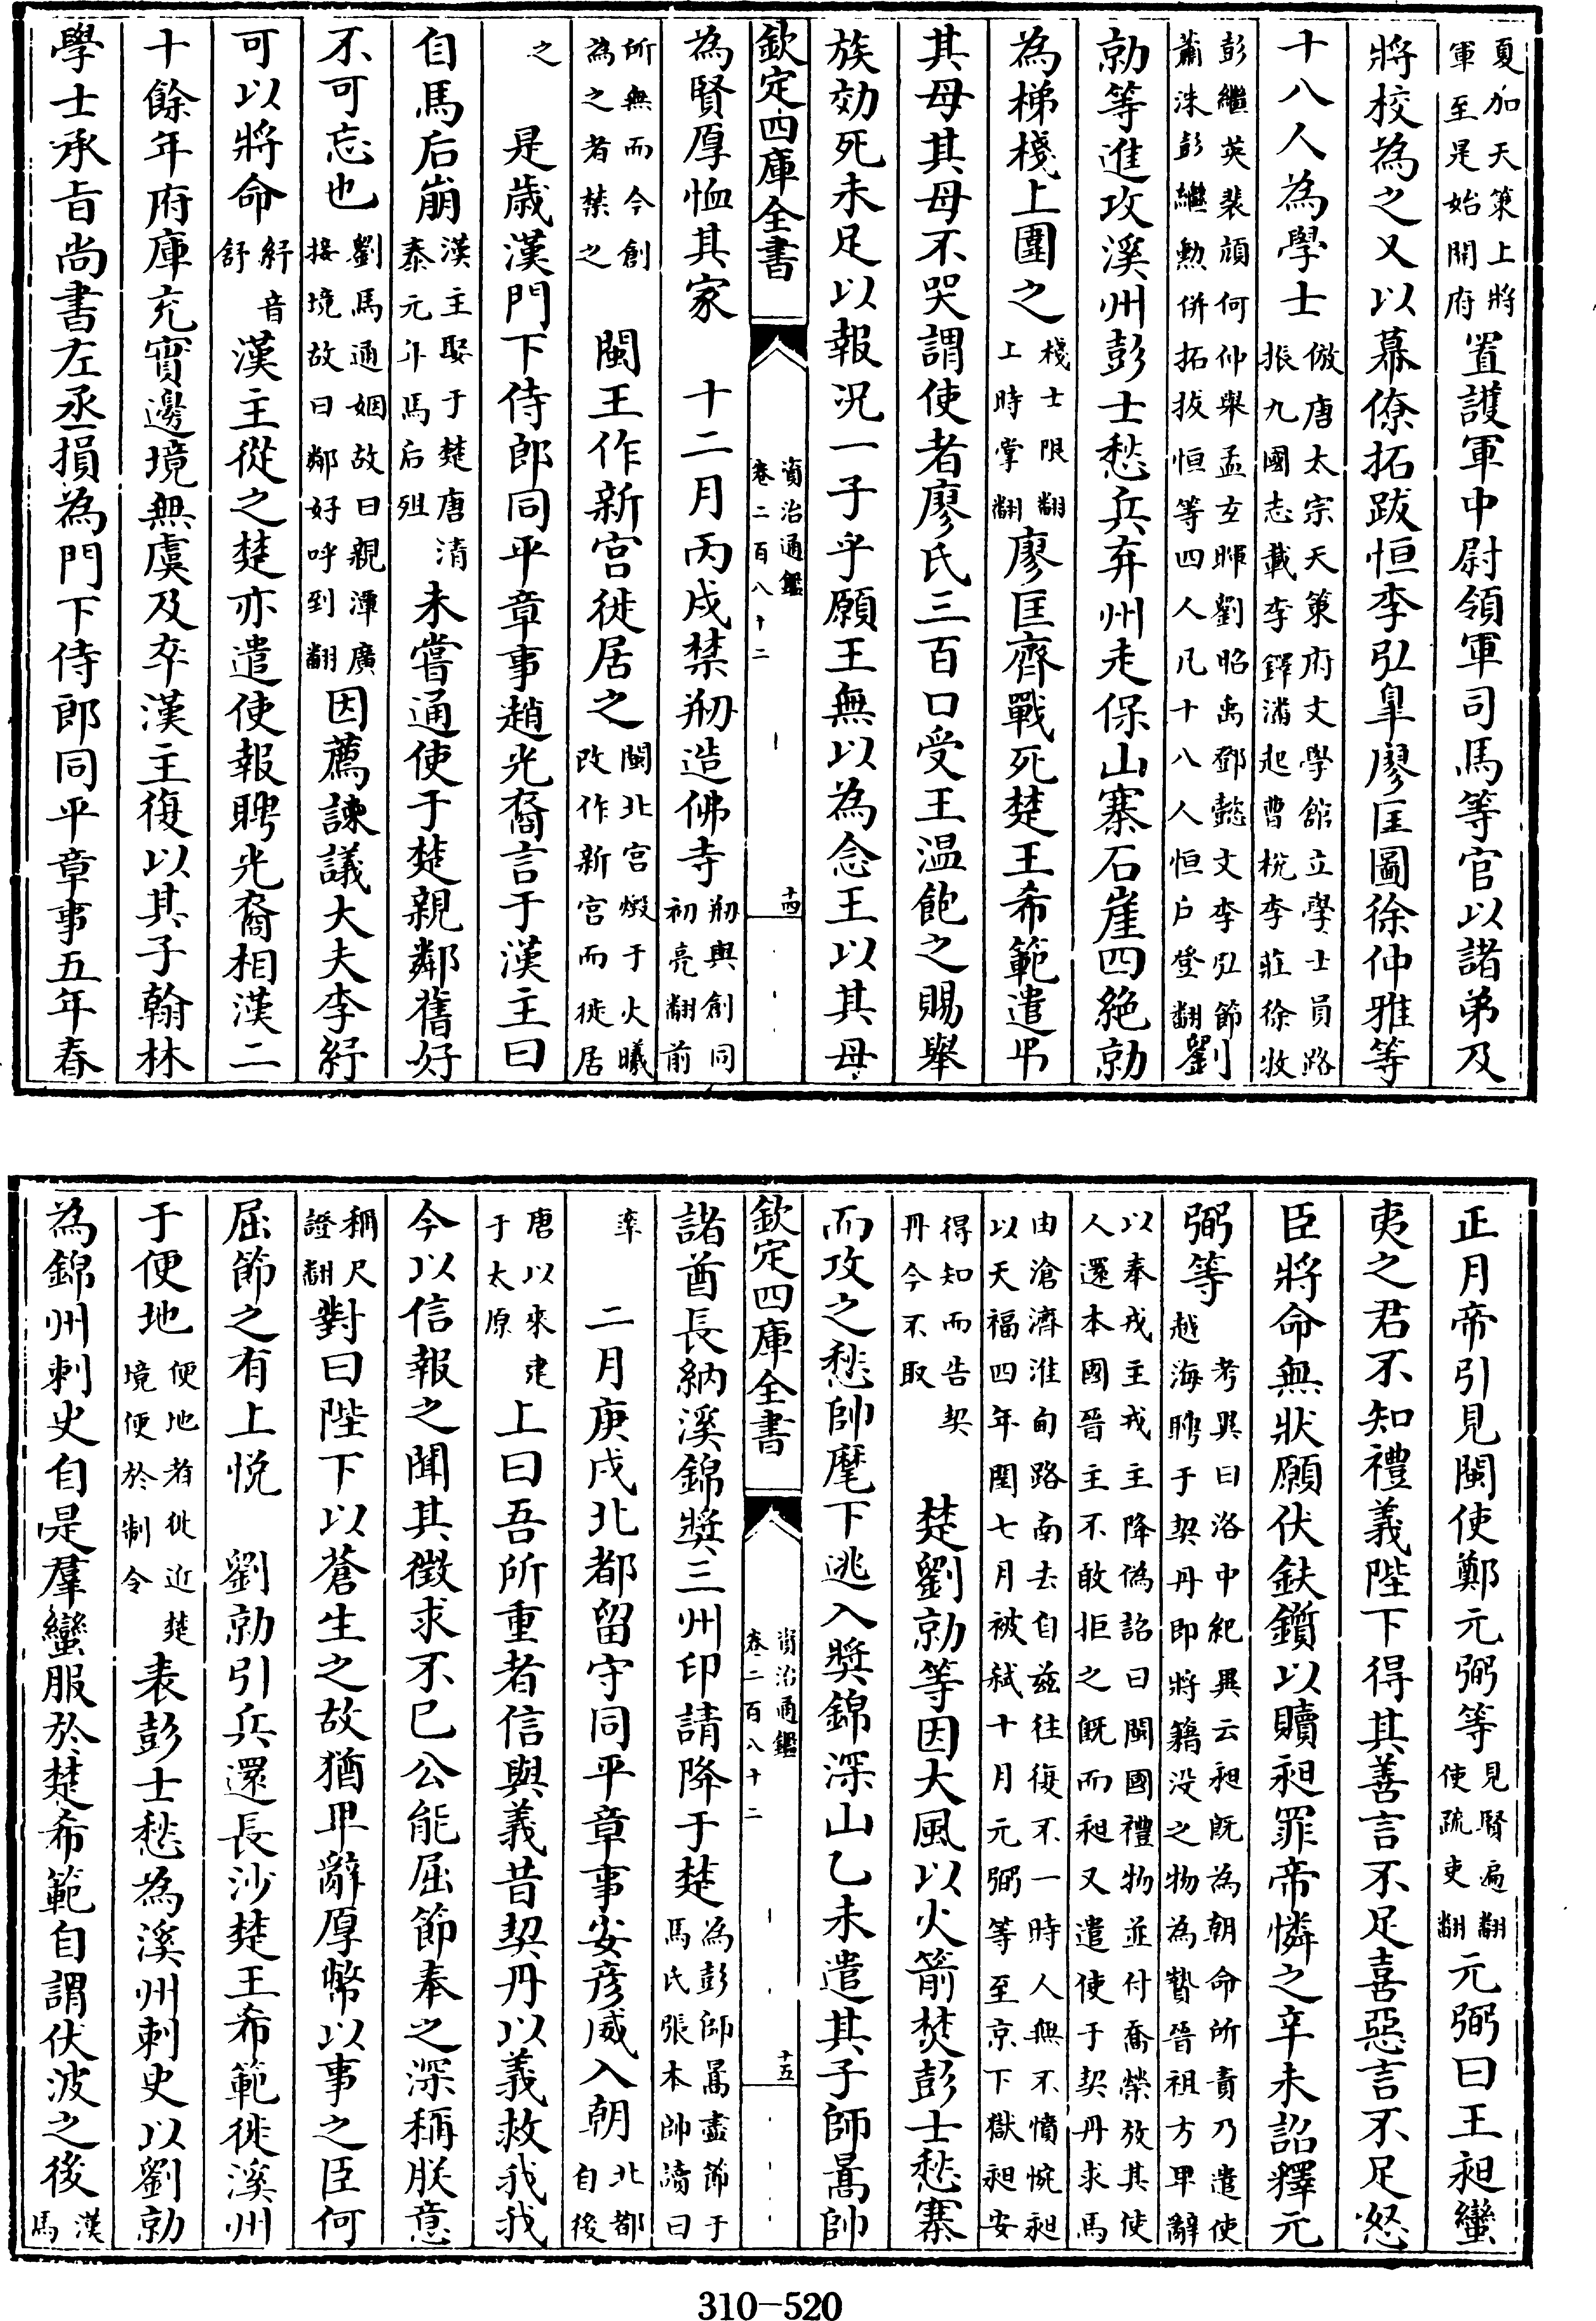 夏加天策上將軍至是始開府置護軍中尉領軍司馬等官以諸弟及
將校為之又以幕僚拓跋恒李弘臯廖匡圖徐仲雅等
十八人為學士倣唐太宗天策府文學館立學士員路振九國志載李鐸潘起曹梲李莊徐收
彭繼英裴頏何仲舉孟玄暉劉昭禹鄧懿文李弘節蕭洙彭繼勲併拓拔恒等四人凡十八人恒户登翻劉
勍等進攻溪州彭士愁兵弃州走保山寨石崖四絶勍
為梯棧上圍之棧士限翻上時掌翻廖匡齊戰死楚王希範遣弔
其母其母不哭謂使者廖氏三百口受王温飽之賜舉
族効死未足以報况一子乎願王無以為念王以其母
欽定四庫全書 資治通鑑 卷二百八十二 十四
為賢厚恤其家 十二月丙戌禁剏造佛寺剏與創同初亮翻前
所無而今創為之者禁之 閩王作新宮徙居之閩北宮燬于火曦改作新宮而徙居
之 是歲漢門下侍郎同平章事趙光裔言于漢主曰
自馬后崩漢主娶于楚唐清泰元年馬后殂未嘗通使于楚親鄰舊好
不可忘也劉馬通姻故曰親潭廣接境故曰鄰好呼到翻因薦諫議大夫李紓
可以將命紓音舒漢主從之楚亦遣使報聘光裔相漢二
十餘年府庫充實邊境無虞及卒漢主復以其子翰林
學士承旨尚書左丞損為門下侍郎同平章事五年春
正月帝引見閩使鄭元弼等見賢遍翻使疏吏翻元弼曰王昶蠻
夷之君不知禮義陛下得其善言不足喜惡言不足怒
臣將命無狀願伏鈇鑕以贖昶罪帝憐之辛未詔釋元
弼等考異曰洛中紀異云昶既為朝命所責乃遣使越海聘于契丹即將籍没之物為贄晉祖方卑辭
以奉戎主戎主降偽詔曰閩國禮物並付喬榮放其使人還本國晉主不敢拒之既而昶又遣使于契丹求馬
由滄濟淮甸路南去自兹往復不一時人無不憤惋昶以天福四年閏七月被弑十月元弼等至京下獄昶安
得知而告契丹今不取 楚劉勍等因大風以火箭焚彭士愁寨
而攻之愁帥麾下逃入奬錦深山乙未遣其子師暠帥
欽定四庫全書 資治通鑑 卷二百八十二 十五
諸酋長納溪錦奬三州印請降于楚為彭師暠盡節于馬氏張本帥讀曰
率 二月庚戌北都留守同平章事安彦威入朝北都自後
唐以來建于太原上曰吾所重者信與義昔契丹以義救我我
今以信報之聞其徵求不已公能屈節奉之深稱朕意
稱尺證翻對曰陛下以蒼生之故猶卑辭厚幣以事之臣何
屈節之有上悦 劉勍引兵還長沙楚王希範徙溪州
于便地便地者徙近楚境便於制令表彭士愁為溪州刺史以劉勍
為錦州刺史自是羣蠻服於楚希範自謂伏波之後漢馬
310-520